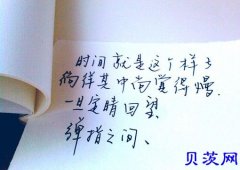 时间就是这个样子
徜徉其中尚觉得慢
一旦定睛回望
弹指之间、
贝茨网